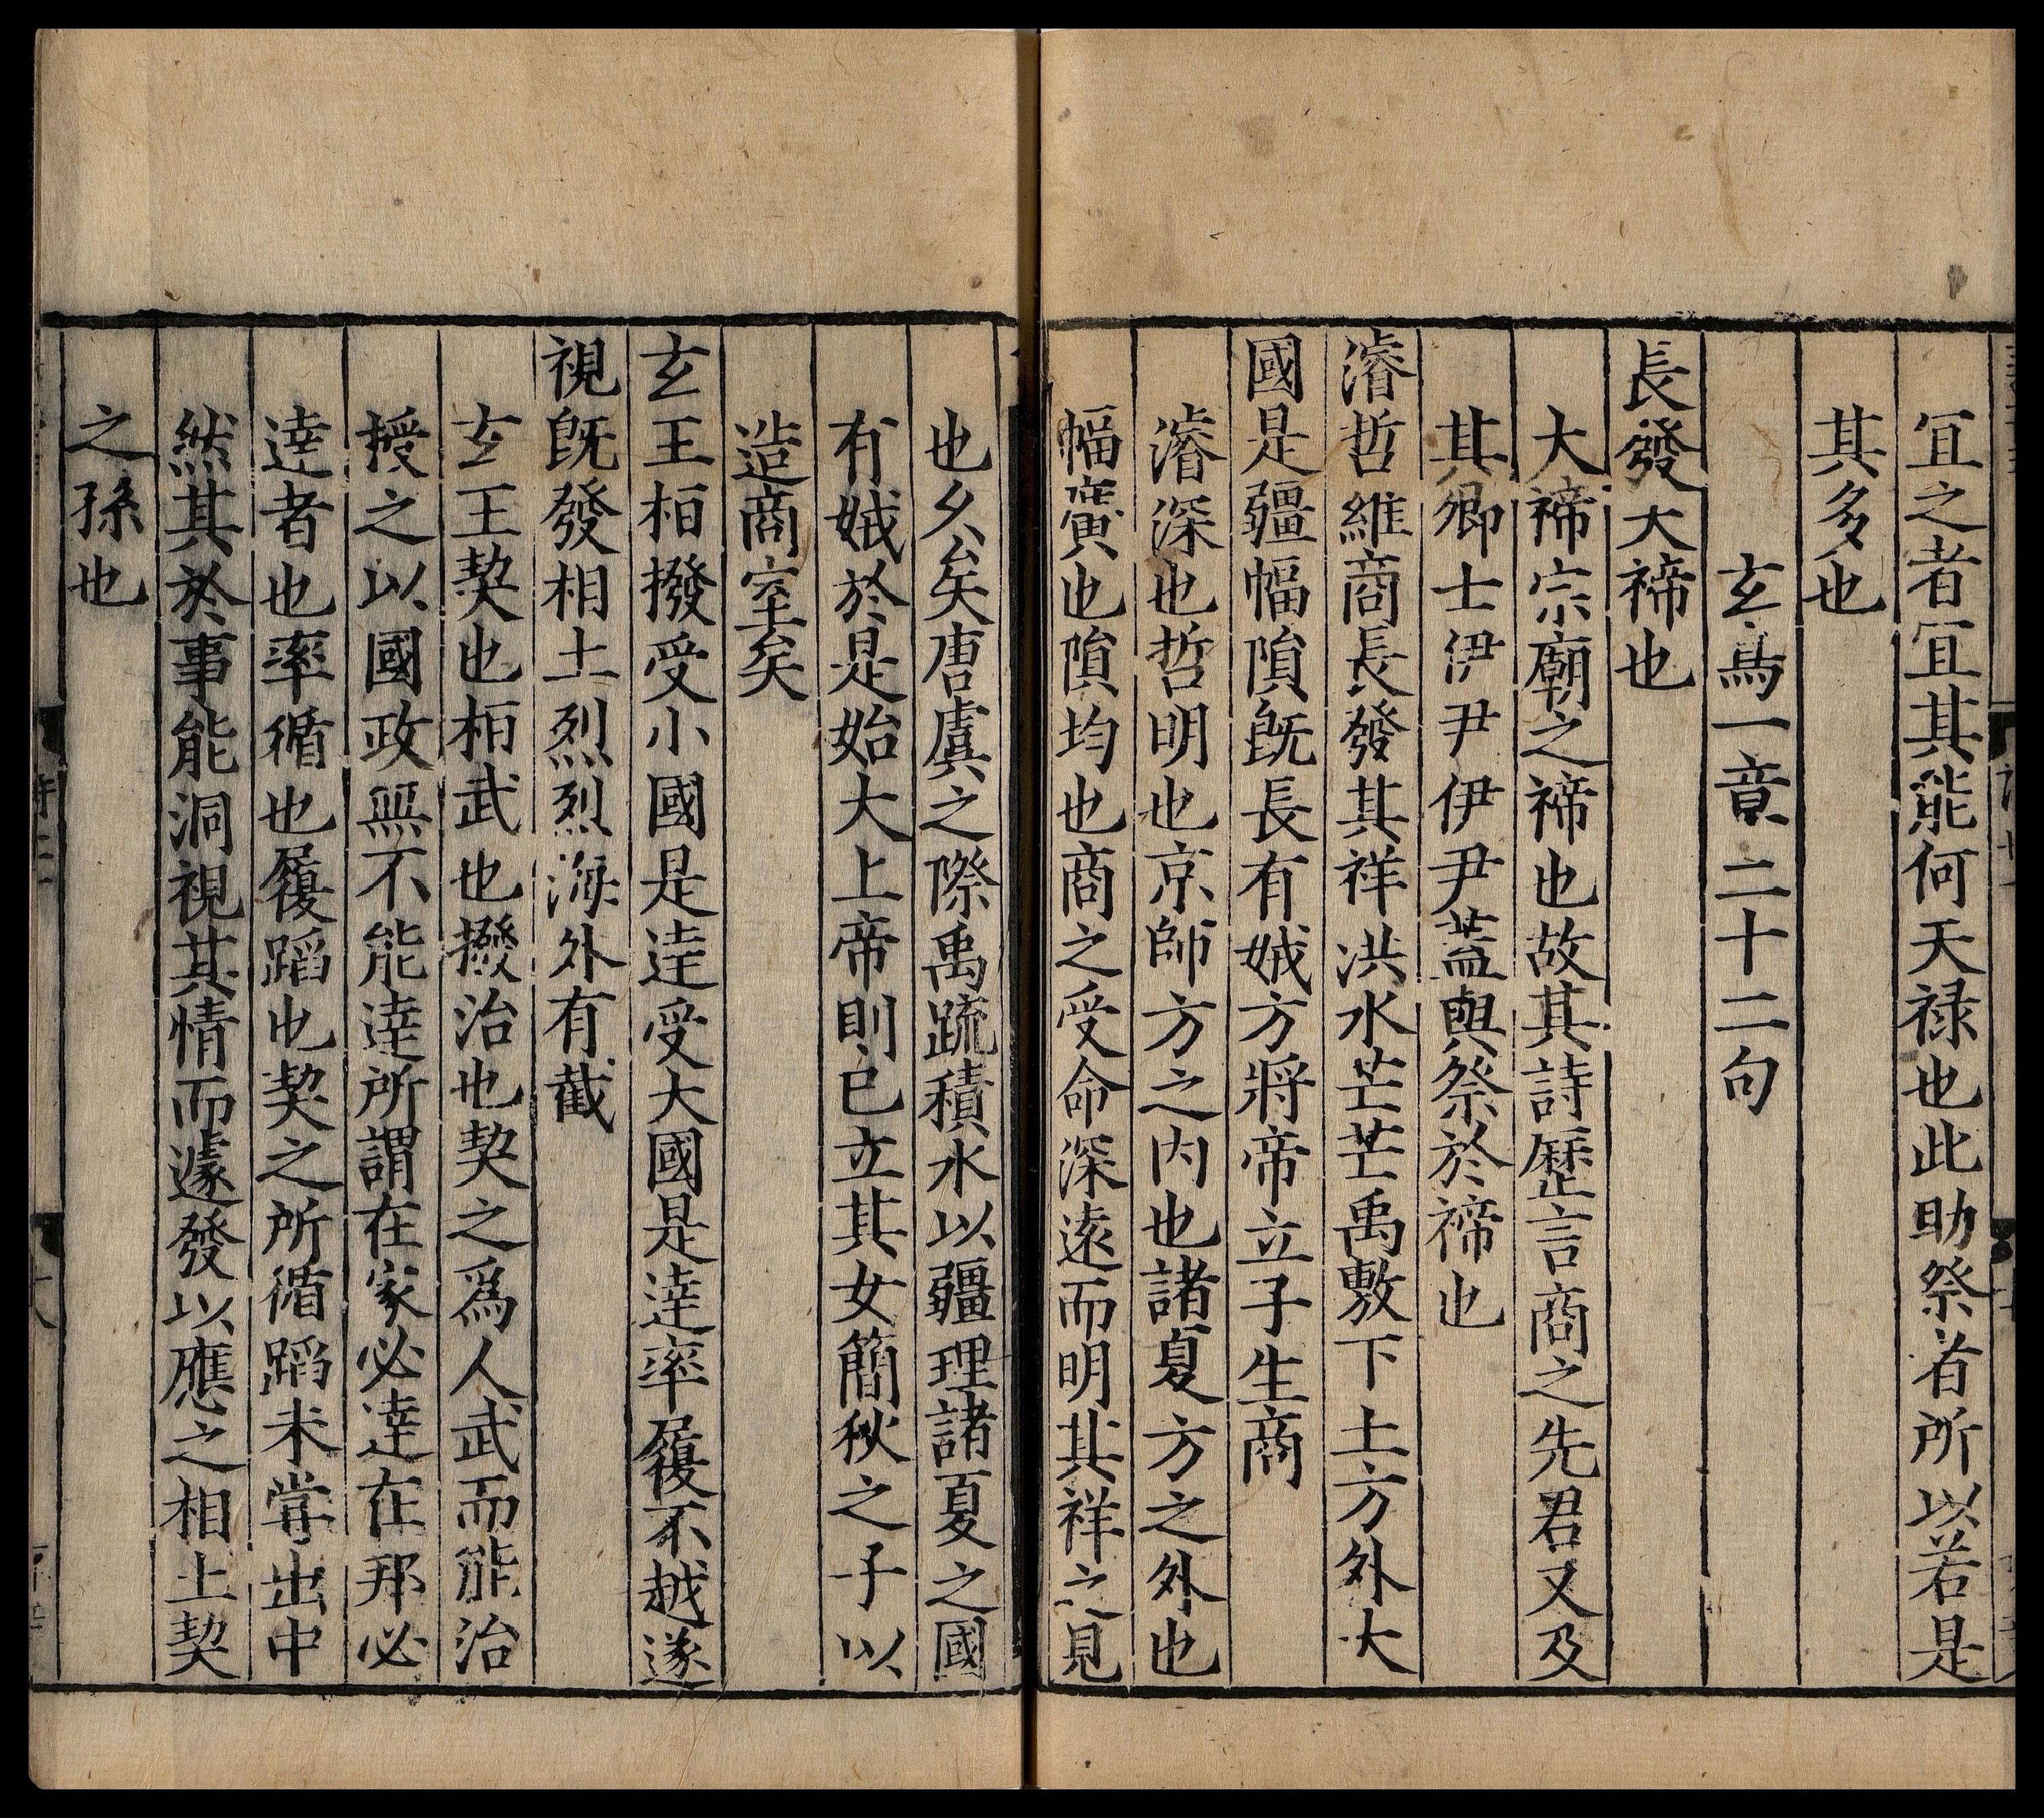 宜之者宜其能何天禄也此助祭者所以若是
其多也
玄鳥一章二十二句
長發大禘也
大禘宗廟之禘也故其詩歷言商之先君又及
其卿士伊尹伊尹蓋與祭於禘也
濬哲維商長發其祥洪水芒芒禹敷下土方外大
國是疆幅隕旣長有娀方將帝立子生商
濬深也哲明也京師方之内也諸夏方之外也
幅廣也隕均也商之受命深遠而明其祥之見
也久矣唐虞之際禹疏積水以疆理諸夏之國
有娀於是始大上帝則已立其女簡狄之子以
造商室矣
玄王桓撥受小國是達受大國是達率履不越遂
視旣發相土烈烈海外有截
玄王契也桓武也撥治也契之爲人武而能治
授之以國政無不能達所謂在家必達在邦必
達者也率循也履蹈也契之所循蹈未甞出中
然其於事能洞視其情而遽發以應之相土契
之孫也